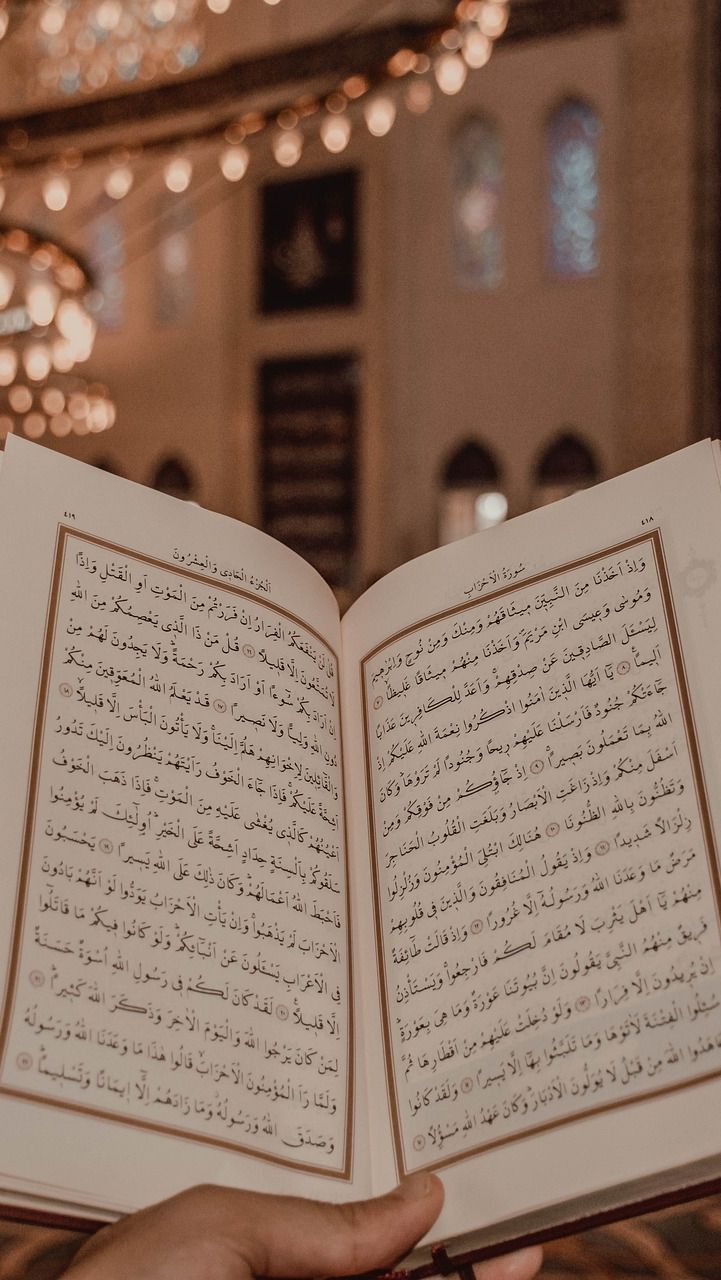 ٤١٨
سُورَةُ الْاَحْزَابِ
وَاِذْ اَخَذْنَا مِنَ النَّبِيّ۪نَ م۪يثَاقَهُمْ وَمِنْكَ وَمِنْ نُوحٍ وَاِبْرٰه۪يمَ
وَمُوسٰى وَع۪يسَى ابْنِ مَرْيَمَۖ وَاَخَذْنَا مِنْهُمْ م۪يثَاقًا غَل۪يظًاۙ ﴿٧﴾
لِيَسْـَٔلَ الصَّادِق۪ينَ عَنْ صِدْقِهِمْۚ وَاَعَدَّ لِلْكَافِر۪ينَ عَذَابًا
اَل۪يمًا۟ ﴿٨﴾ يَٓا اَيُّهَا الَّذ۪ينَ اٰمَنُوا اذْكُرُوا نِعْمَةَ اللّٰهِ عَلَيْكُمْ اِذْ
جَٓاءَتْكُمْ جُنُودٌ فَاَرْسَلْنَا عَلَيْهِمْ ر۪يحًا وَجُنُودًا لَمْ تَرَوْهَاۜ وَكَانَ
اللّٰهُ بِمَا تَعْمَلُونَ بَص۪يرًاۚ ﴿٩﴾ اِذْ جَٓاؤُ۫كُمْ مِنْ فَوْقِكُمْ وَمِنْ
اَسْفَلَ مِنْكُمْ وَاِذْ زَاغَتِ الْاَبْصَارُ وَبَلَغَتِ الْقُلُوبُ الْحَنَاجِرَ
وَتَظُنُّونَ بِاللّٰهِ الظُّنُونَا۠ ﴿١٠﴾ هُنَالِكَ ابْتُلِيَ الْمُؤْمِنُونَ وَزُلْزِلُوا
زِلْزَالًا شَد۪يدًا ﴿١١﴾ وَاِذْ يَقُولُ الْمُنَافِقُونَ وَالَّذ۪ينَ ف۪ي قُلُوبِهِمْ
مَرَضٌ مَا وَعَدَنَا اللّٰهُ وَرَسُولُهُٓ اِلَّا غُرُورًا ﴿١٢﴾ وَاِذْ قَالَتْ طَٓائِفَةٌ
مِنْهُمْ يَٓا اَهْلَ يَثْرِبَ لَا مُقَامَ لَكُمْ فَارْجِعُواۚ وَيَسْتَأْذِنُ
فَر۪يقٌ مِنْهُمُ النَّبِيَّ يَقُولُونَ اِنَّ بُيُوتَنَا عَوْرَةٌ وَمَا هِيَ بِعَوْرَةٍۚ
اِنْ يُر۪يدُونَ اِلَّا فِرَارًا ﴿١٣﴾ وَلَوْ دُخِلَتْ عَلَيْهِمْ مِنْ اَقْطَارِهَا ثُمَّ
سُئِلُوا الْفِتْنَةَ لَاٰتَوْهَا وَمَا تَلَبَّثُوا بِهَٓا اِلَّا يَس۪يرًا ﴿١٤﴾ وَلَقَدْ كَانُوا
عَاهَدُوا اللّٰهَ مِنْ قَبْلُ لَا يُوَلُّونَ الْاَدْبَارَۜ وَكَانَ عَهْدُ اللّٰهِ مَسْؤُ۫لًا ﴿١٥﴾
٤١٩
اَلْجُزْءُ الْحَادِي وَالْعِشْرُونَ
قُلْ لَنْ يَنْفَعَكُمُ الْفِرَارُ اِنْ فَرَرْتُمْ مِنَ الْمَوْتِ اَوِ الْقَتْلِ وَاِذًا
لَا تُمَتَّعُونَ اِلَّا قَل۪يلًا ﴿١٦﴾ قُلْ مَنْ ذَا الَّذ۪ي يَعْصِمُكُمْ مِنَ اللّٰهِ
اِنْ اَرَادَ بِكُمْ سُٓوءًا اَوْ اَرَادَ بِكُمْ رَحْمَةًۜ وَلَا يَجِدُونَ لَهُمْ مِنْ
دُونِ اللّٰهِ وَلِيًّا وَلَا نَص۪يرًا ﴿١٧﴾ قَدْ يَعْلَمُ اللّٰهُ الْمُعَوِّق۪ينَ مِنْكُمْ
وَالْقَٓائِل۪ينَ لِاِخْوَانِهِمْ هَلُمَّ اِلَيْنَاۚ وَلَا يَأْتُونَ الْبَأْسَ اِلَّا قَل۪يلًاۙ ﴿١٨﴾
اَشِحَّةً عَلَيْكُمْۚ فَاِذَا جَٓاءَ الْخَوْفُ رَاَيْتَهُمْ يَنْظُرُونَ اِلَيْكَ تَدُورُ
اَعْيُنُهُمْ كَالَّذ۪ي يُغْشٰى عَلَيْهِ مِنَ الْمَوْتِۚ فَاِذَا ذَهَبَ الْخَوْفُ
سَلَقُوكُمْ بِاَلْسِنَةٍ حِدَادٍ اَشِحَّةً عَلَى الْخَيْرِۜ اُو۬لٰٓئِكَ لَمْ يُؤْمِنُوا
فَاَحْبَطَ اللّٰهُ اَعْمَالَهُمْۜ وَكَانَ ذٰلِكَ عَلَى اللّٰهِ يَس۪يرًا ﴿١٩﴾ يَحْسَبُونَ
الْاَحْزَابَ لَمْ يَذْهَبُواۚ وَاِنْ يَأْتِ الْاَحْزَابُ يَوَدُّوا لَوْ اَنَّهُمْ بَادُونَ
فِي الْاَعْرَابِ يَسْـَٔلُونَ عَنْ اَنْـبَٓائِكُمْۜ وَلَوْ كَانُوا ف۪يكُمْ مَا قَاتَلُٓوا
اِلَّا قَل۪يلًا۟ ﴿٢٠﴾ لَقَدْ كَانَ لَكُمْ ف۪ي رَسُولِ اللّٰهِ اُسْوَةٌ حَسَنَةٌ
لِمَنْ كَانَ يَرْجُوا اللّٰهَ وَالْيَوْمَ الْاٰخِرَ وَذَكَرَ اللّٰهَ كَث۪يرًاۜ ﴿٢١﴾
وَلَمَّا رَاَ الْمُؤْمِنُونَ الْاَحْزَابَۙ قَالُوا هٰذَا مَا وَعَدَنَا اللّٰهُ وَرَسُولُهُ
وَصَدَقَ اللّٰهُ وَرَسُولُهُۘ وَمَا زَادَهُمْ اِلَّٓا ا۪يمَانًا وَتَسْل۪يمًاۜ ﴿٢٢﴾